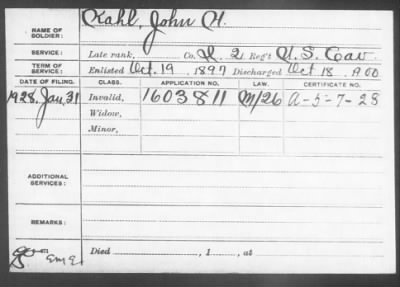 NAME OF SOLDIER: Kahl, John H.
SERVICE: Late rank, Co. L. 2 Reg't U.S. Cav
TERM OF SERVICE: Enlisted Oct. 19 1897 Discharged Oct 18 1900
DATE OF FILING. CLASS. APPLICATION NO. LAW. CERTIFICATE NO.
1928, Jan. 31 Invalid, 1603811 M/26 A-5-7-28
Widow,
Minor,
ADDITIONAL SERVICES:
REMARKS:
Died , 1 , at